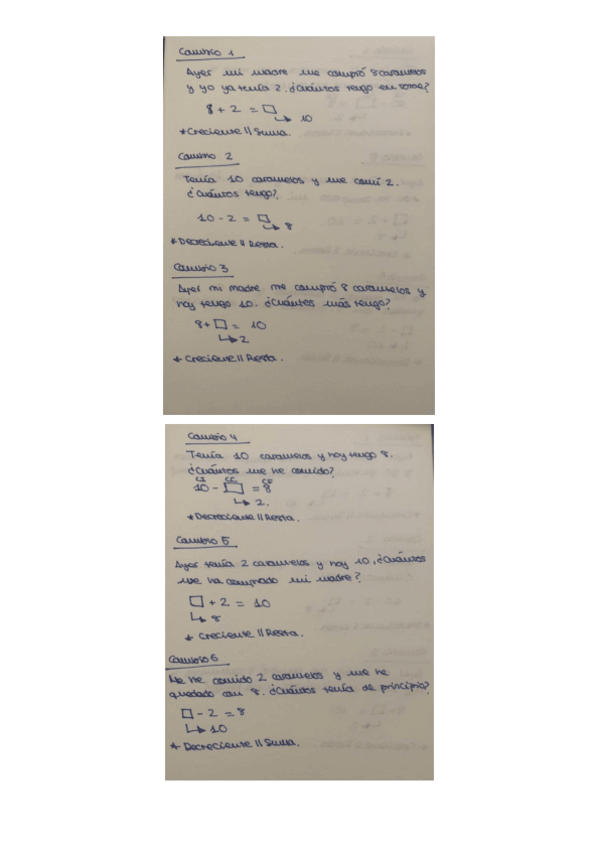 Cambio 1
Ayer mi madre me compró 8 caramelos
y yo ya tenía 2. ¿Cuántos tengo en total?
8 + 2 = □
↳ 10
*Creciente || Suma.
Cambio 2
Tenía 10 caramelos y me comí 2.
¿Cuántos tengo?
10 - 2 = □
↳ 8
*Decreciente || Resta.
Cambio 3
Ayer mi madre me compró 8 caramelos y
hoy tengo 10. ¿Cuántos más tengo?
8 + □ = 10
↳ 2
* Creciente || Resta.
Cambio 4
Tenía 10 caramelos y hoy tengo 8.
¿Cuántos me he comido?
CI CC CF
10 - □ = 8
↳ 2.
* Decreciente || Resta.
Cambio 5
Ayer tenía 2 caramelos y hoy 10, ¿Cuántos
me ha comprado mi madre?
□ + 2 = 10
↳ 8
* Creciente || Resta.
Cambio 6
Me he comido 2 caramelos y me he
quedado con 8. ¿Cuántos tenía de principio?
□ - 2 = 8
↳ 10
* Decreciente || Suma.